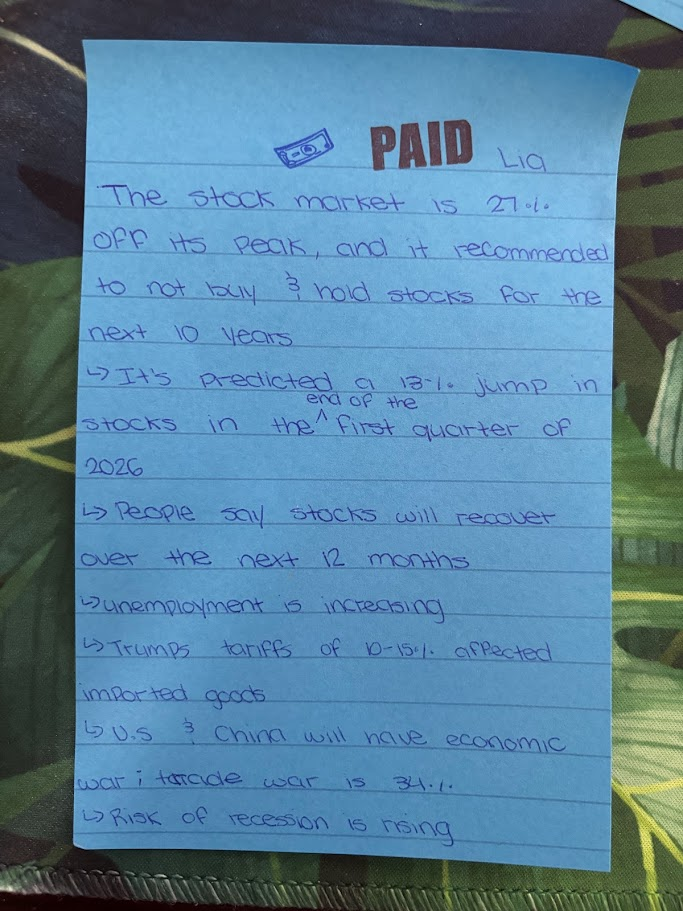 PAID Lia
The stock market is 27%
off its peak, and it recommended
to not buy & hold stocks for the
next 10 years
↳ It's predicted a 13% jump in
end of the
stocks in the ^ first quarter of
2026
↳ People say stocks will recover
over the next 12 months
↳ unemployment is increasing
↳ Trumps tariffs of 10-15% affected
imported goods
↳ U.S & China will have economic
war; trade war is 34%
↳ Risk of recession is rising